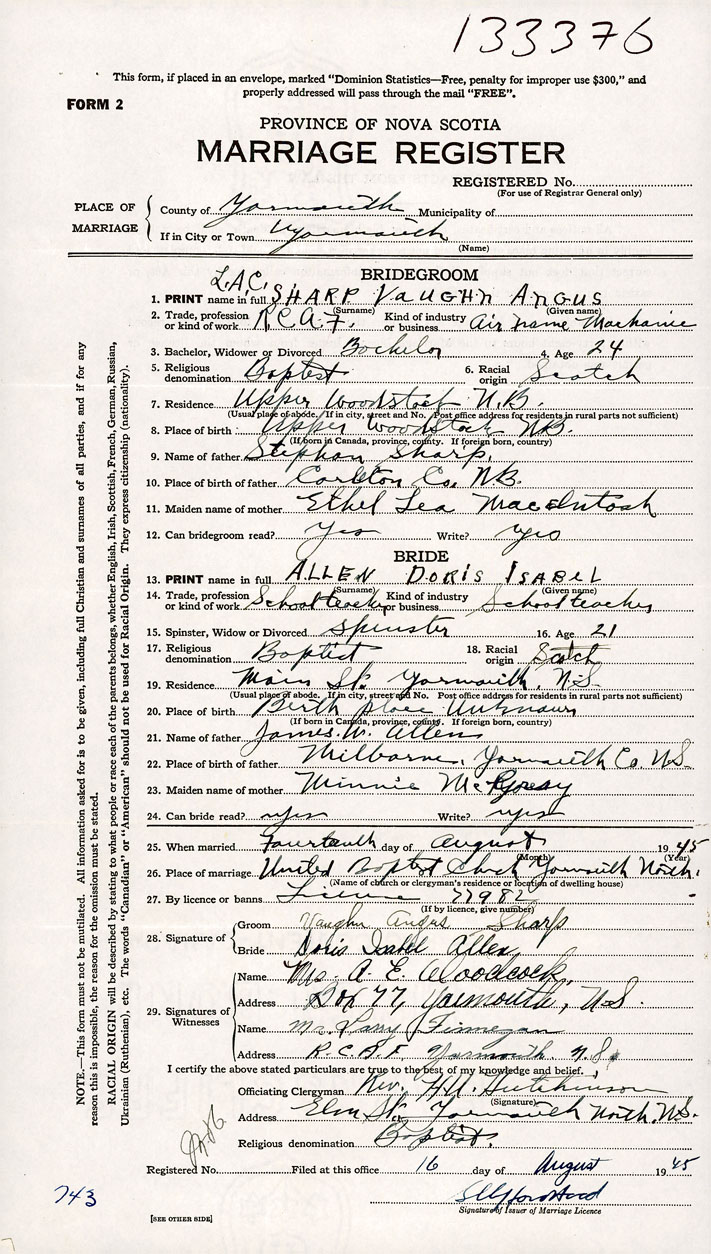 133376
This form, if placed in an envelope, marked "Dominion Statistics—Free, penalty for improper use $300," and
properly addressed will pass through the mail "FREE".
FORM 2
PROVINCE OF NOVA SCOTIA
MARRIAGE REGISTER
REGISTERED No.
(For use of Registrar General only)
PLACE OF MARRIAGE
County of Yarmouth Municipality of
If in City or Town Yarmouth
(Name)
BRIDEGROOM
L.A.C.
1. PRINT name in full SHARP VAUGHN ANGUS
(Surname) (Given name)
2. Trade, profession or kind of work R.C.A.F. Kind of industry or business Air frame Mechanic
3. Bachelor, Widower or Divorced Bachelor 4. Age 24
5. Religious denomination Baptist 6. Racial origin Scotch
7. Residence Upper Woodstock N.B.
(Usual place of abode. If in city, street and No. Post office address for residents in rural parts not sufficient)
8. Place of birth Upper Woodstock NB.
(If born in Canada, province, county. If foreign born, country)
9. Name of father Stephen Sharp.
10. Place of birth of father Carleton Co. N.B.
11. Maiden name of mother Ethel Lea MacIntosh
12. Can bridegroom read? Yes Write? yes
BRIDE
13. PRINT name in full ALLEN DORIS ISABEL
(Surname) (Given name)
14. Trade, profession or kind of work School teacher Kind of industry or business School teacher
15. Spinster, Widow or Divorced Spinster 16. Age 21
17. Religious denomination Baptist 18. Racial origin Scotch
19. Residence Main St. Yarmouth, N.S.
(Usual place of abode. If in city, street and No. Post office address for residents in rural parts not sufficient)
20. Place of birth Birth place Unknown
(If born in Canada, province, county. If foreign born, country)
21. Name of father James W. Allen
22. Place of birth of father Yarmouth Co. N.S.
23. Maiden name of mother Minnie
24. Can bride read? yes Write? yes
25. When married Fourteenth day of August 1945
(Month) (Year)
26. Place of marriage United Baptist Church Yarmouth North.
(Name of church or clergyman's residence or location of dwelling house)
27. By licence or banns Licence 77982
(If by licence, give number)
28. Signature of
Groom Vaughn Angus Sharp
Bride Doris Isabel Allen
29. Signatures of Witnesses
Name Mrs. A. E. Woodcock.
Address Box 77, Yarmouth, N.S.
Name Mr. Finnegan
Address R.C.A.F. Yarmouth. N.S.
I certify the above stated particulars are true to the best of my knowledge and belief.
Officiating Clergyman Rev. Hutchinson
(Signature)
Address Elm St. Yarmouth North. N.S.
Religious denomination Baptist.
Registered No. Filed at this office 16 day of August 1945
743
Signature of Issuer of Marriage Licence
[SEE OTHER SIDE]
NOTE.—This form must not be mutilated. All information asked for is to be given, including full Christian and surnames of all parties, and if for any
reason this is impossible, the reason for the omission must be stated.
RACIAL ORIGIN will be described by stating to what people or race each of the parents belongs, whether English, Irish, Scottish, French, German, Russian,
Ukrainian (Ruthenian), etc. The words "Canadian" or "American" should not be used for Racial Origin. They express citizenship (nationality).